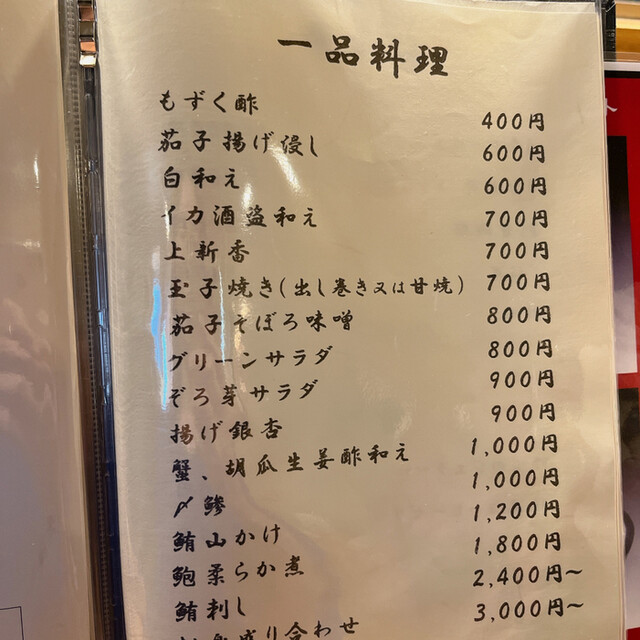 一品料理
もずく酢 400円
茄子揚げ浸し 600円
白和え 600円
イカ酒盗和え 700円
上新香 700円
玉子焼き(出し巻き又は甘焼) 700円
茄子そぼろ味噌 800円
グリーンサラダ 800円
ぞろ芽サラダ 900円
揚げ銀杏 900円
蟹、胡瓜生姜酢和え 1,000円
〆鯵 1,000円
鮪山かけ 1,200円
鮑柔らか煮 1,800円
鮪刺し 2,400円～
盛り合わせ 3,000円～